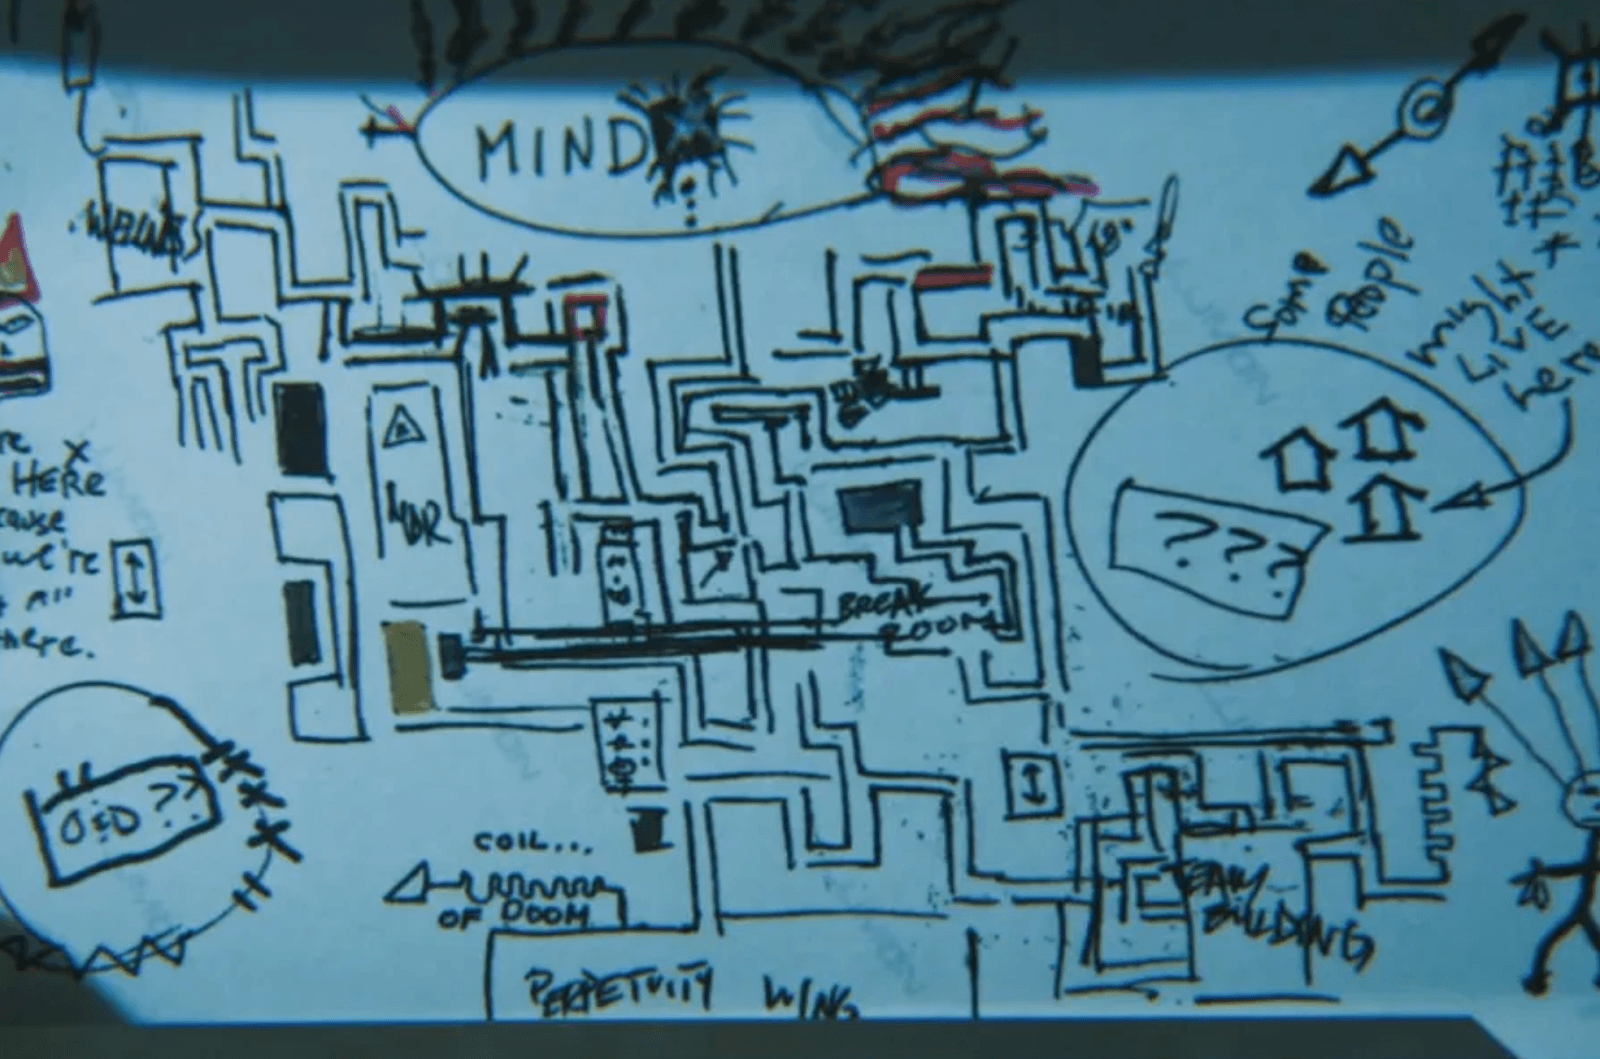 MIND
18°
Some
People
might
LIVE
here
X
HERE
we're
all
there.
MDR
? ? ?
BREAK
ROOM
O&D ??
COIL...
OF DOOM
TEAM
BUILDING
PERPETUITY WING